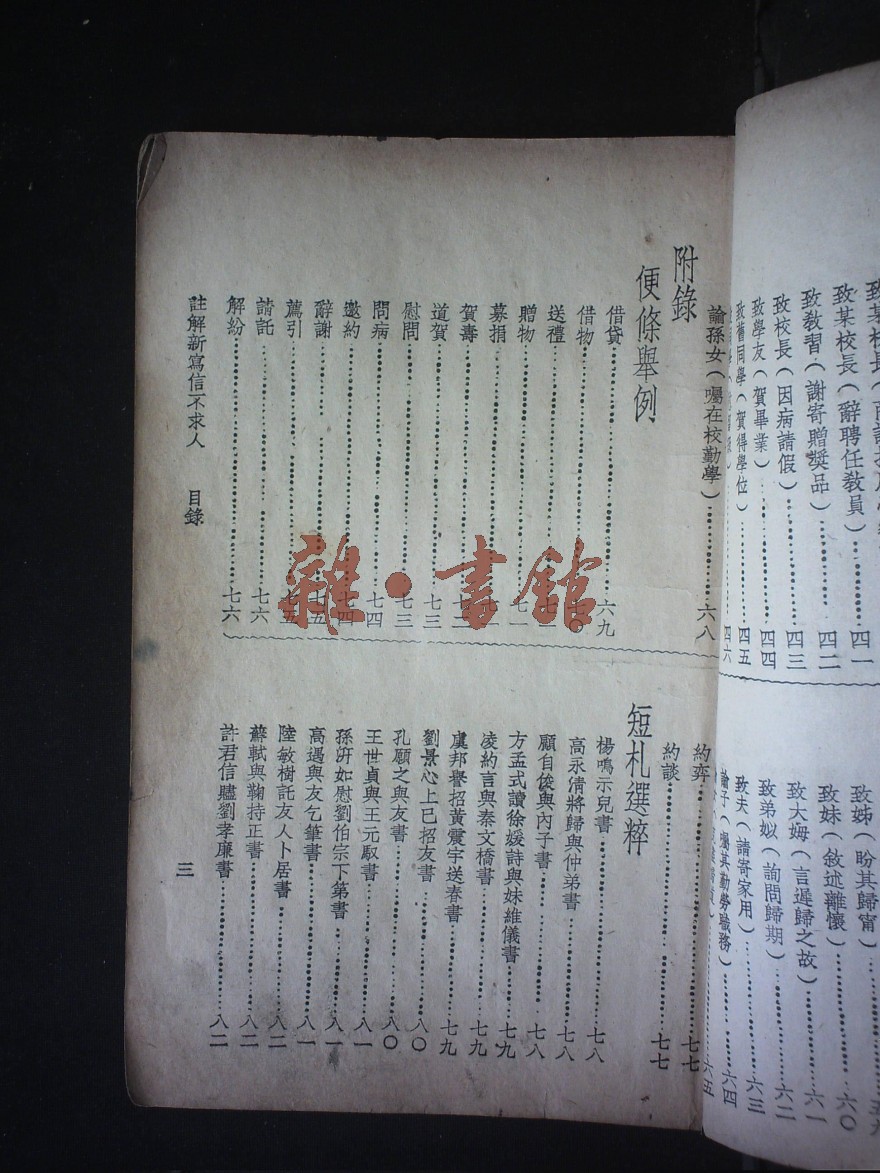 致某校長（辭聘任教員）……四一
致教習（謝寄贈獎品）……四二
致校長（因病請假）……四三
致學友（賀畢業）……四四
致舊同學（賀得學位）……四五
四六
致姊（盼其歸甯）……六〇
致妹（敘述離懷）……六一
致大姆（言遲歸之故）……六二
致弟姒（詢問歸期）……六三
致夫（請寄家用）……六四
諭子（囑其勤勞職務）……六五
諭孫女（囑在校勤學）……六八
附錄
便條舉例
借貸……六九
借物……七〇
送禮
贈物……七一
募捐
賀壽……七二
道賀……七三
慰問……七三
問病……七四
邀約……七四
辭謝……七五
薦引……七五
請託……七六
解紛……七六
約弈……七七
約談……七七
短札選粹
楊鳴示兒書……七八
高永倩將歸與仲弟書……七八
顧自俊與內子書……七八
方孟式讀徐媛詩與妹維儀書……七九
凌約言與秦文橋書……七九
虞邦譽招黃震宇送春書……七九
劉景心上巳招友書……八〇
孔願之與友書……八〇
王世貞與王元馭書……八一
孫汧如慰劉伯宗下第書……八一
高遇與友乞筆書……八一
陸敏樹託友人卜居書……八二
蘇軾與鞠持正書……八二
許君信贐劉孝廉書……八二
註解新寫信不求人　目錄
三
雜·書館